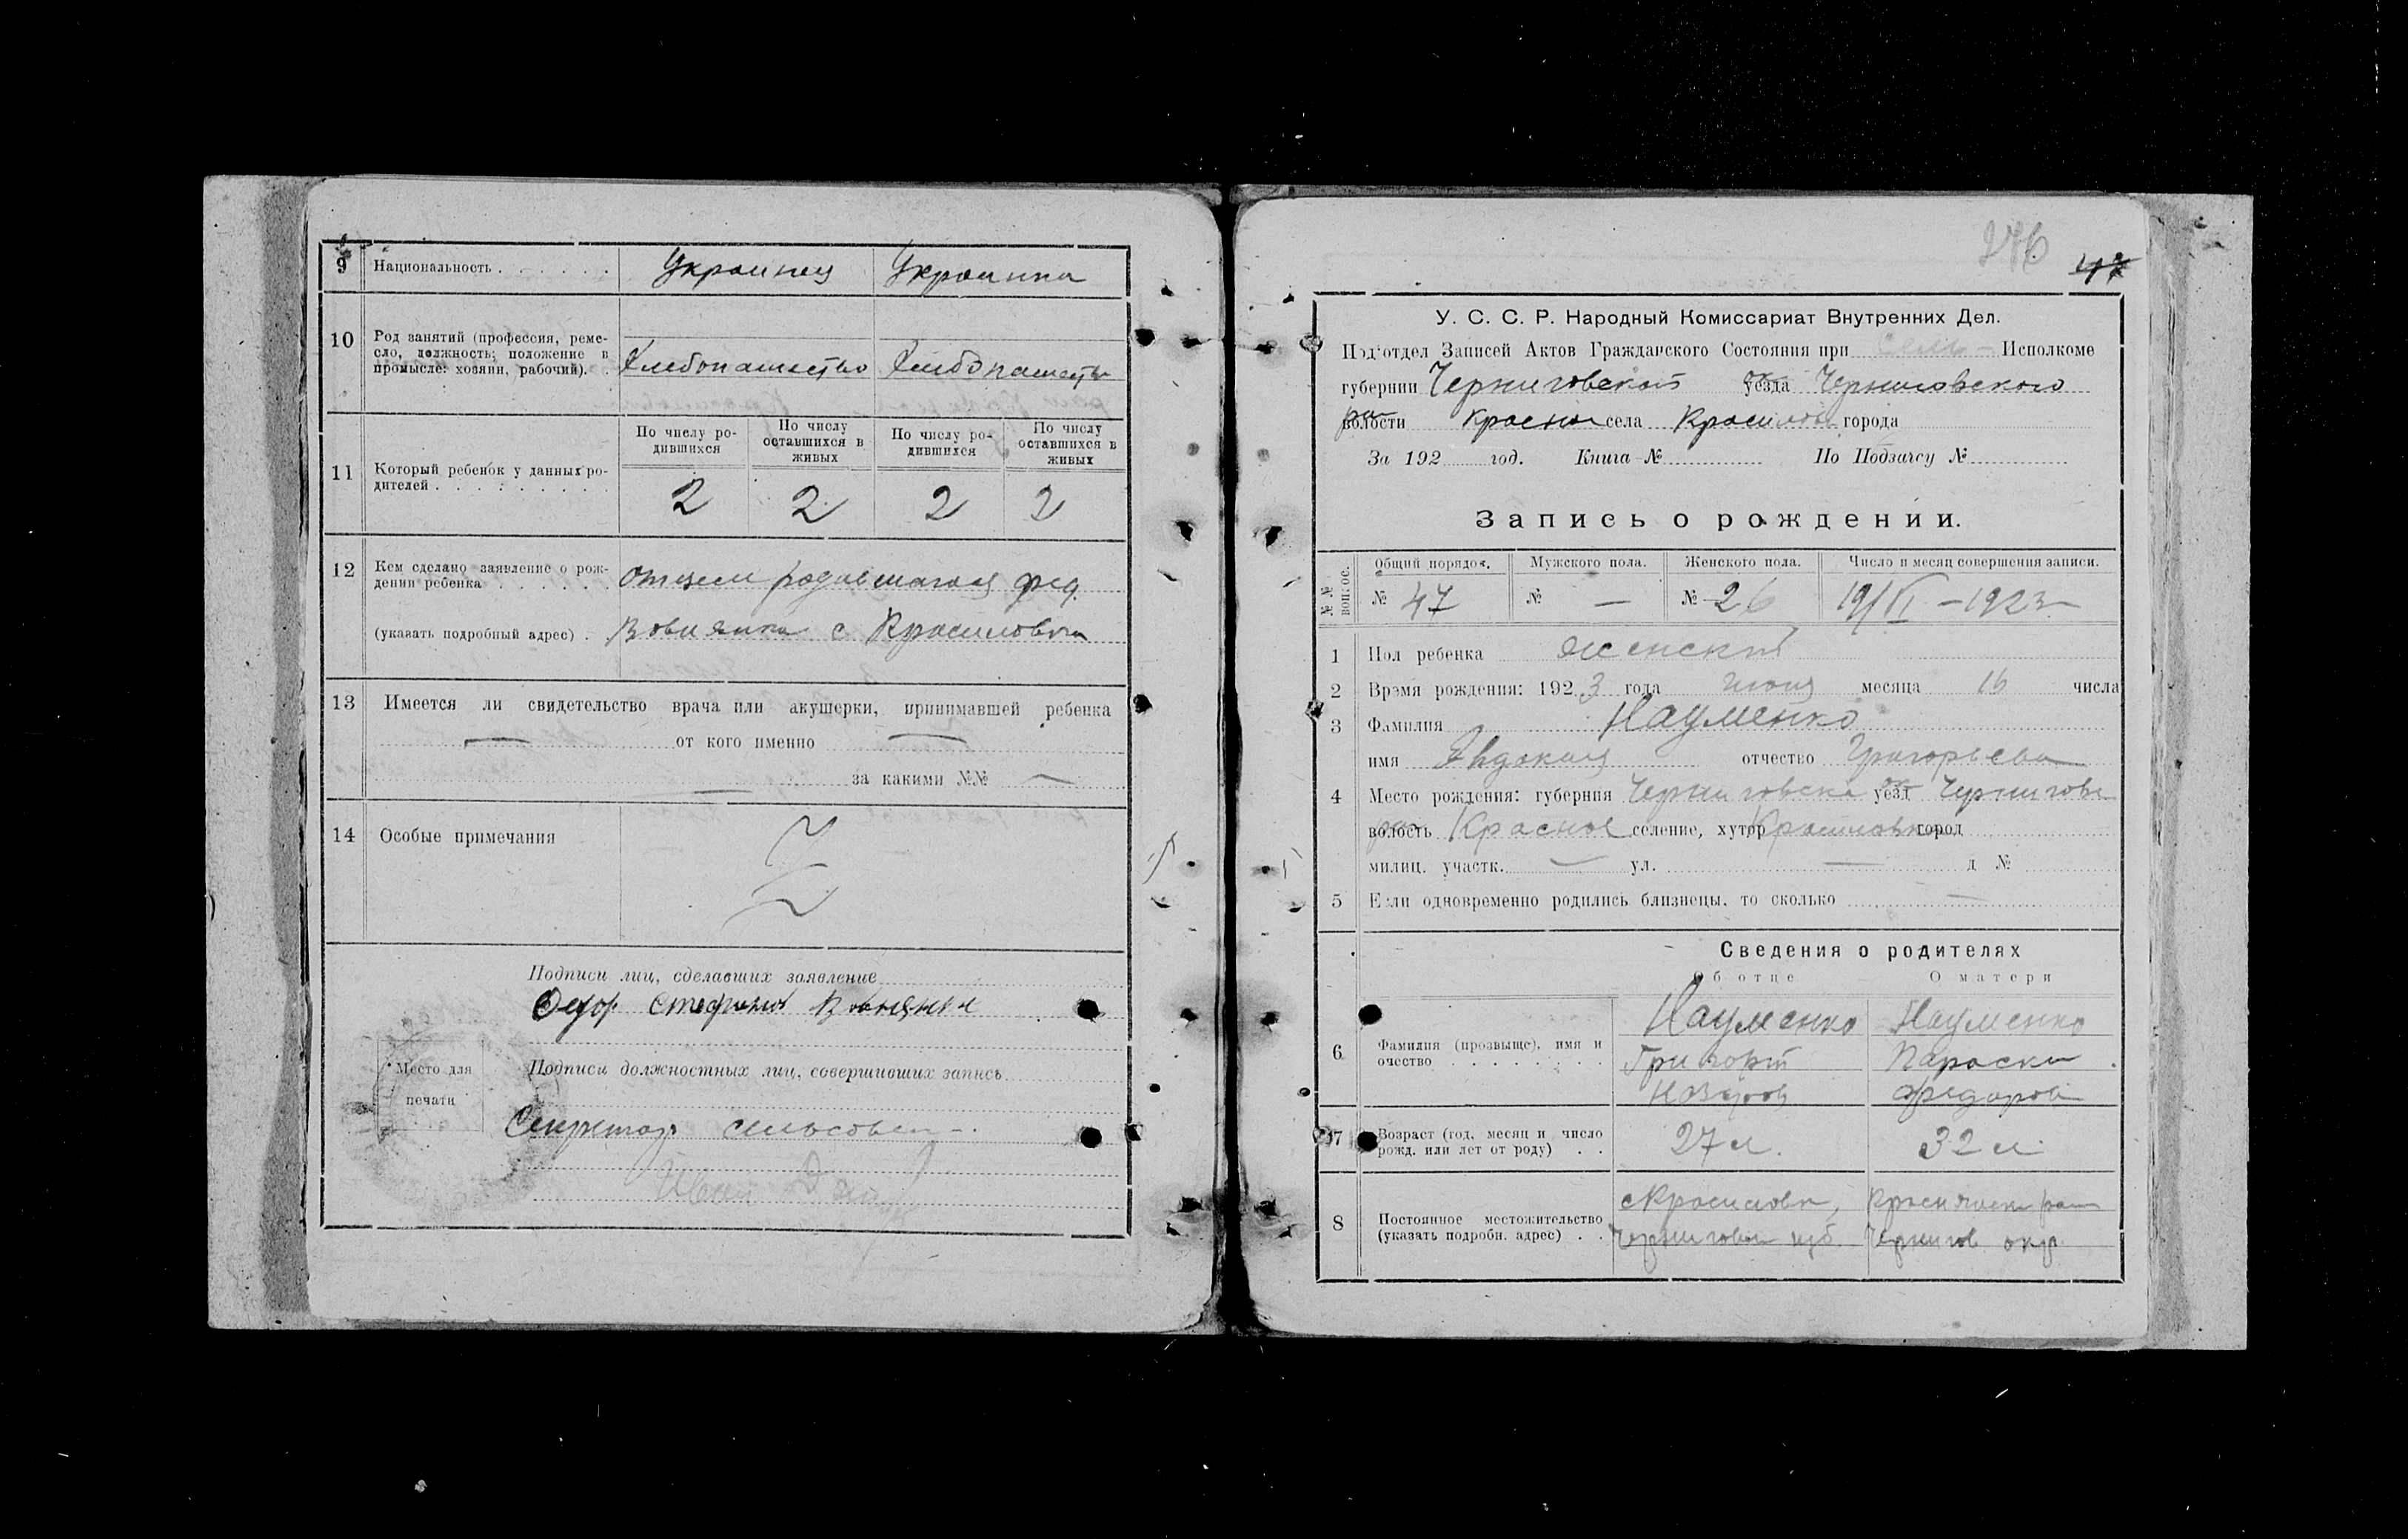 9 Национальность . . . . . . Украинец Украинка
10 Род занятий (профессия, реме-
сло, должность; положение в
промысле: хозяин, рабочий). . Хлебопашество Хлебопашество
11 Который ребенок у данных ро-
дителей . . . . . . . . .
По числу ро-
дившихся
По числу
оставшихся в
живых
По числу ро-
дившихся
По числу
оставшихся в
живых
2 2 2 2
12 Кем сделано заявление о рож-
дении ребенка . . . . . . Отцем родившагося Фед.
(указать подробный адрес) . с Красиловка
13 Имеется ли свидетельство врача или акушерки, принимавшей ребенка
— от кого именно —
— за какими №№ —
14 Особые примечания
Подписи лиц, сделавших заявление
Федор Стефанов
Место для
печати
Подписи должностных лиц, совершивших запись
Секретарь сельсовета
Иван
246 47
У. С. С. Р. Народный Комиссариат Внутренних Дел.
Под'отдел Записей Актов Гражданского Состояния при Сель— Исполкоме
губернии Черниговской уезда ок Черниговского
волости рай Красно села Красиловка города
За 192 год. Книга № По Подзагсу №
Запись о рождении.
№№ вопрос.
Общий порядок. Мужского пола. Женского пола. Число и месяц совершения записи.
№ 47 № — № 26 19/VI – 1923
1 Пол ребенка женский
2 Время рождения: 192 3 года июня месяца 16 числа
3 Фамилия Науменко
имя Авдокия отчество Григорьева
4 Место рождения: губерния Черниговска уезд ок Чернигов
волость рай Красное селение, хутор Красиловка город
милиц. участк. — ул. — д №
5 Если одновременно родились близнецы, то сколько —
Сведения о родителях
Об отце О матери
6 Фамилия (прозвыще), имя и
очество . . . . . . . .
Науменко Науменко
Григорий Параска
Назаров Федоров
7 Возраст (год, месяц и число
рожд. или лет от роду) . . 27 л. 32 л
8 Постоянное местожительство
(указать подробн. адрес) . .
с Красиловка, Краснянск рай
Чернигов губ. Чернигов окр.